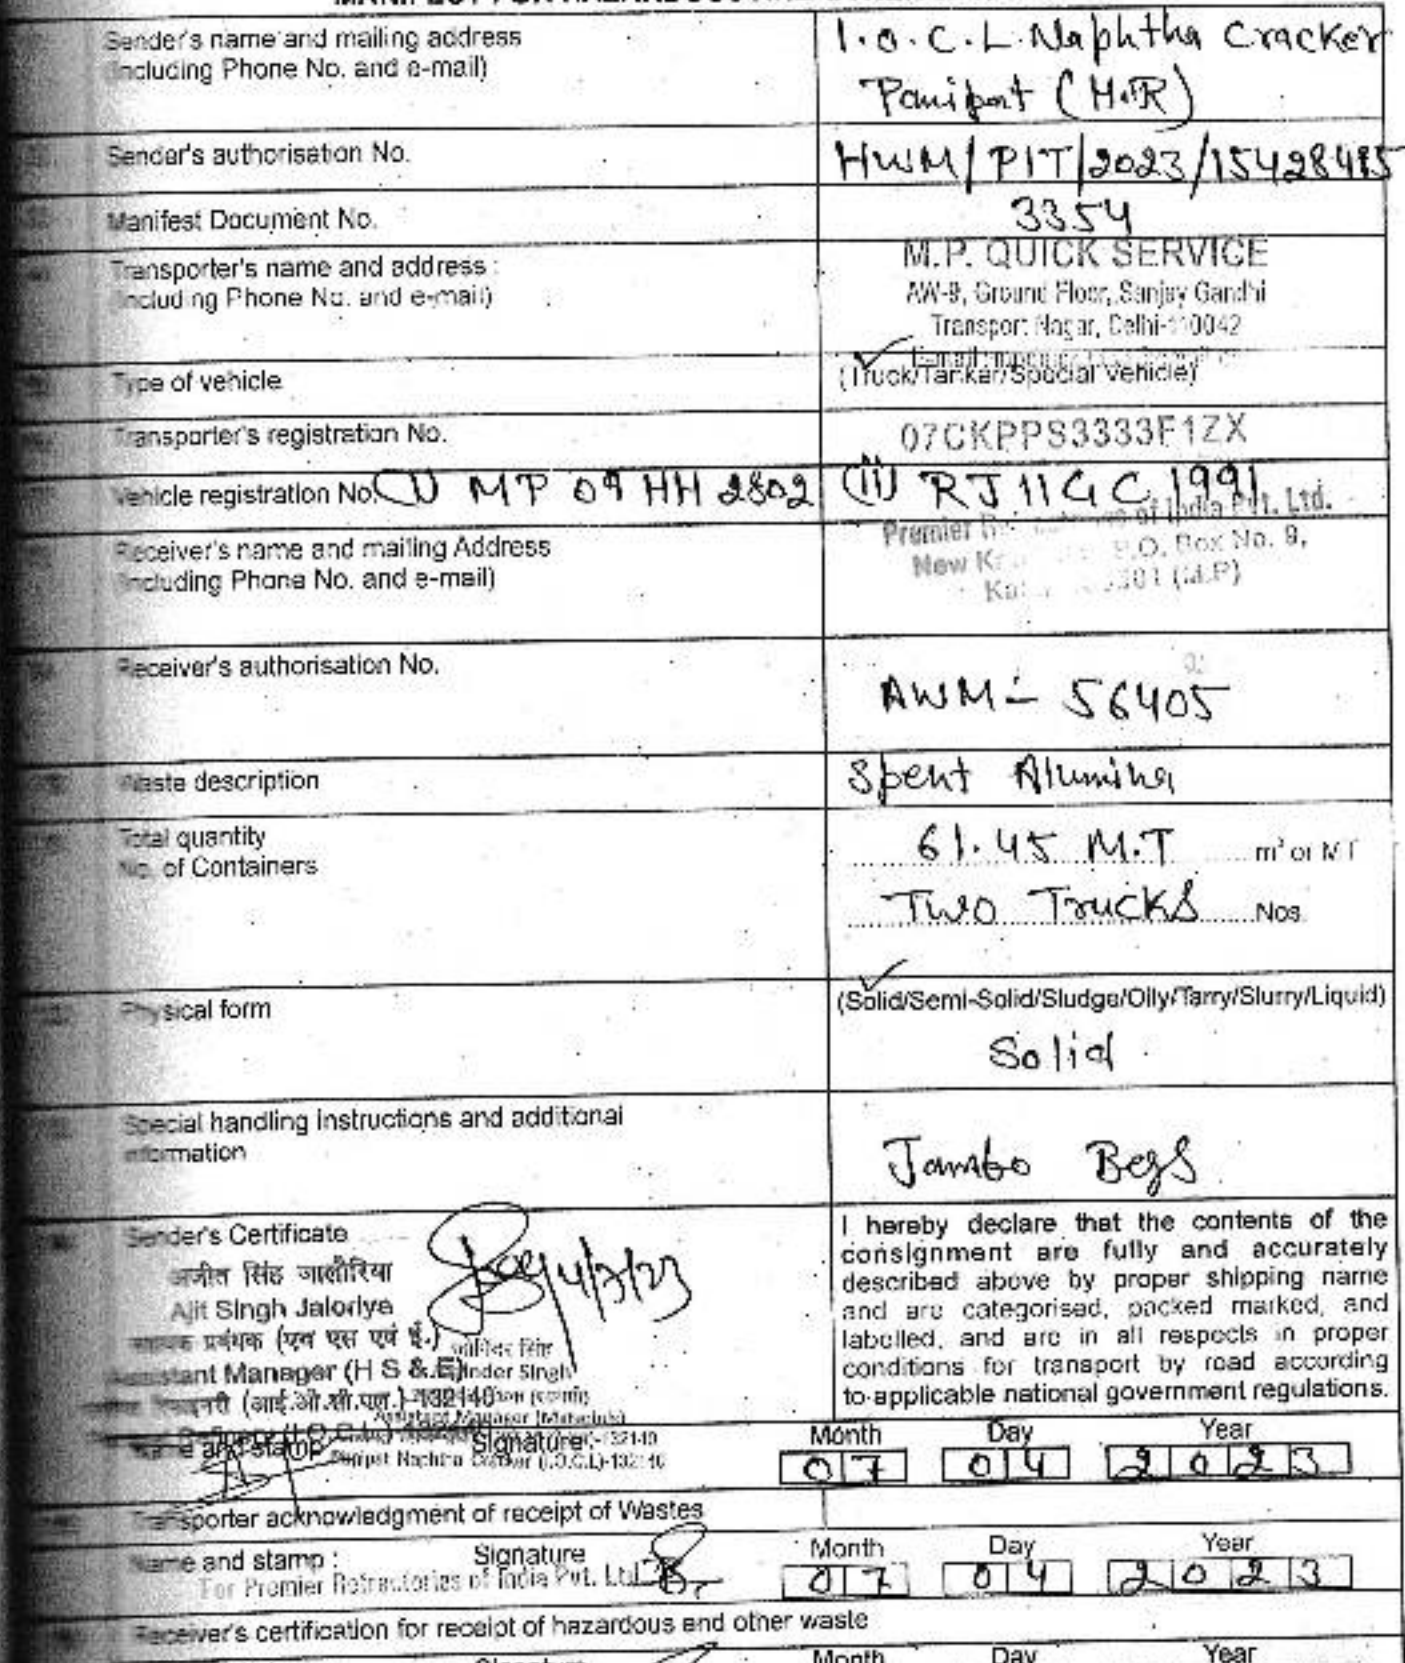 Sender's name and mailing address
(including Phone No. and e-mail)
I.O.C.L. Naphtha Cracker
Panipat (H.R)
Sender's authorisation No.
HWM/PIT/2023/15428485
Manifest Document No.
3354
Transporter's name and address :
(including Phone No. and e-mail)
M.P. QUICK SERVICE
AW-9, Ground Floor, Sanjay Gandhi
Transport Nagar, Delhi-110042
Type of vehicle
(Truck/Tanker/Special Vehicle)
Transporter's registration No.
07CKPPS3333F1ZX
Vehicle registration No. (i) MP 09 HH 2802 (ii) RJ 11 GC 1991
Receiver's name and mailing Address
(including Phone No. and e-mail)
Premier of India Pvt. Ltd.
New P.O. Box No. 9,
(M.P)
Receiver's authorisation No.
AWM - 56405
Waste description
Spent Alumina
Total quantity
No. of Containers
61.45 M.T m³ or MT
Two Trucks Nos.
Physical form
(Solid/Semi-Solid/Sludge/Oily/Tarry/Slurry/Liquid)
Solid
Special handling instructions and additional
information
Jambo Begs
Sender's Certificate
4/7/23
अजीत सिंह जालौरिया
Ajit Singh Jaloriya
प्रबंधक (एच एस एवं ई.)
Assistant Manager (H S & E)
रिफाइनरी (आई.ओ.सी.एल.)-132140
Refinery (I.O.C.L.)
inder Singh
Assistant Manager
Panipat Naphtha Cracker (I.O.C.L)-132140
I hereby declare that the contents of the
consignment are fully and accurately
described above by proper shipping name
and are categorised, packed marked, and
labelled, and are in all respects in proper
conditions for transport by road according
to applicable national government regulations.
Name and stamp Signature: Month Day Year
07 04 2023
Transporter acknowledgment of receipt of Wastes
Name and stamp : Signature Month Day Year
For Premier Refractories of India Pvt. Ltd. 07 04 2023
Receiver's certification for receipt of hazardous and other waste
Signature Month Day Year